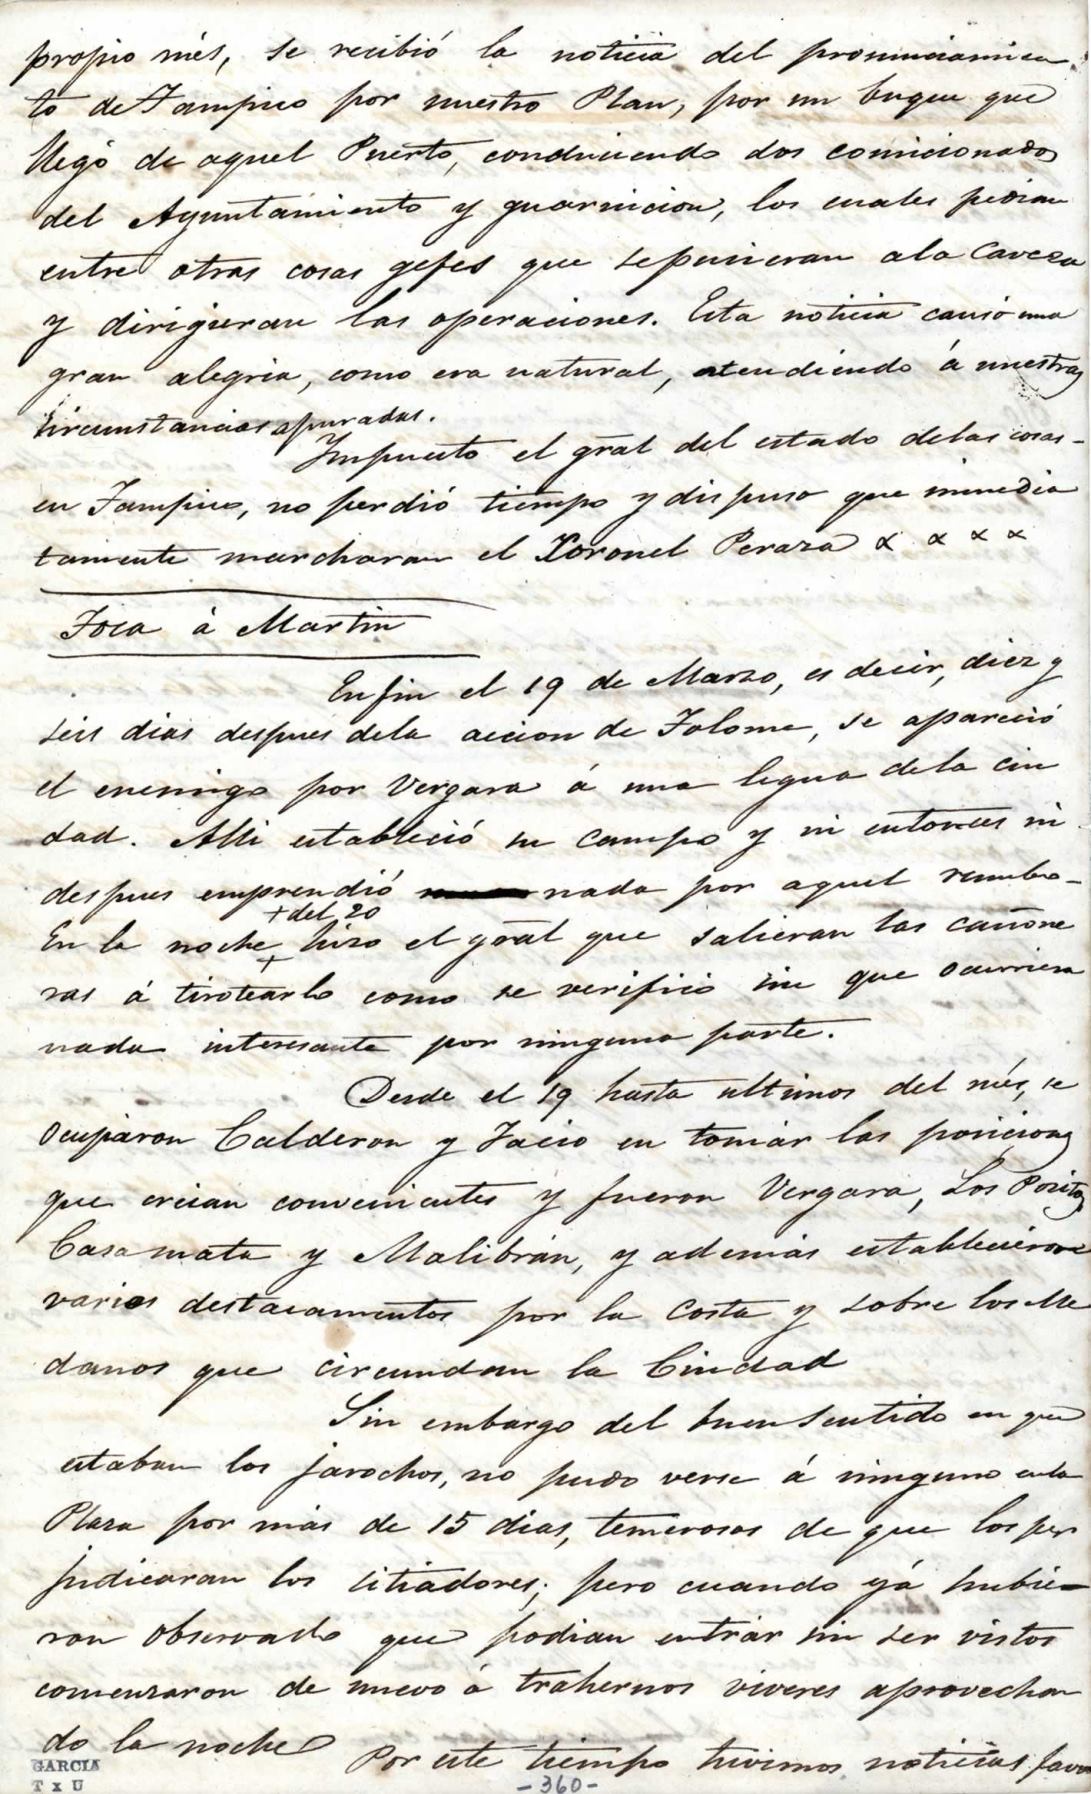 propio més, se recibió la noticia del pronunciamien
to de Tampico por nuestro Plan, por un buque que
llegó de aquel Puerto, conduciendo dos comicionados
del Ayuntamiento y guarnicion, los cuales pedian
entre otras cosas gefes que sepusieran ala Caveza
y dirigieran las operaciones. Esta noticia causó una
gran alegria, como era natural, atendiendo á nuestras
circunstancias apuradas.
Impuesto el gral del estado delas cosas
en Tampico, no perdió tiempo y dispuso que inmedia
tamente marcharan el Coronel Peraza x x x x
Toca á Martin
En fin el 19 de Marzo, es decir, diez y
seis dias despues dela accion de Tolome, se apareció
el enemigo por Vergara á una legua dela ciu
dad. Alli estableció su campo y ni entonces ni
despues emprendió nada por aquel rumbo
+ del 20
En la noche + hizo el gral que salieran las cañone
ras á tirotearlo como se verificó sin que ocurriera
nada interesante por ninguna parte.
Desde el 19 hasta ultimos del més, se
ocuparon Calderon y Facio en tomar las posiciones
que creian convenientes y fueron Vergara, Los Pocitos
Casamata y Malibrán, y además establecieron
varios destacamentos por la Costa y sobre los Me
danos que circundan la Ciudad
Sin embargo del buen sentido en que
estaban los jarochos, no pudo verse á ninguno enla
Plaza por más de 15 dias, temerosos de que los per
judicaran los sitiadores; pero cuando yá hubie-
ron observado que podian entrar sin ser vistos
comenzaron de nuevo á trahernos viveres aprovechan
do la noche
Por este tiempo tuvimos noticias favo
GARCIA
T x U
-360-